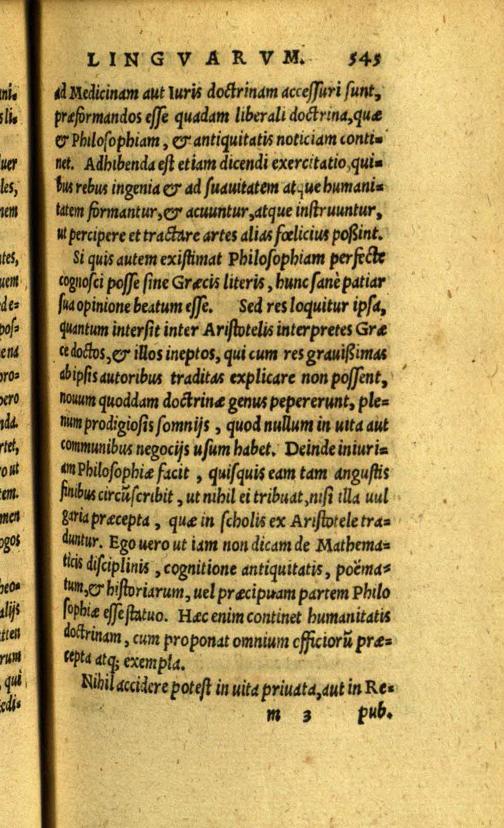 LINGVARVM. 545
ad Medicinam aut Iuris doctrinam accessuri sunt,
præformandos esse quadam liberali doctrina, quæ
& Philosophiam, & antiquitatis noticiam conti-
net. Adhibenda est etiam dicendi exercitatio, qui-
bus rebus ingenia & ad suauitatem atque humani-
tatem formantur, & acuuntur, atque instruuntur,
ut percipere et tractare artes alias fœlicius poßint.
Si quis autem existimat Philosophiam perfecte
cognosci posse sine Græcis literis, hunc sanè patiar
sua opinione beatum esse. Sed res loquitur ipsa,
quantum intersit inter Aristotelis interpretes Græ
ce doctos, & illos ineptos, qui cum res grauißimas
ab ipsis autoribus traditas explicare non possent,
nouum quoddam doctrinæ genus pepererunt, ple-
num prodigiosis somnijs, quod nullum in uita aut
communibus negocijs usum habet. Deinde iniuri-
am Philosophiæ facit, quisquis eam tam angustis
finibus circũscribit, ut nihil ei tribuat, nisi illa uul
garia præcepta, quæ in scholis ex Aristotele tra-
duntur. Ego uero ut iam non dicam de Mathema-
ticis disciplinis, cognitione antiquitatis, poëma-
tum, & historiarum, uel præcipuam partem Philo
sophiæ esse statuo. Hæc enim continet humanitatis
doctrinam, cum proponat omnium officiorũ præ-
cepta atq; exempla.
Nihil accidere potest in uita priuata, aut in Re-
m 3 pub.